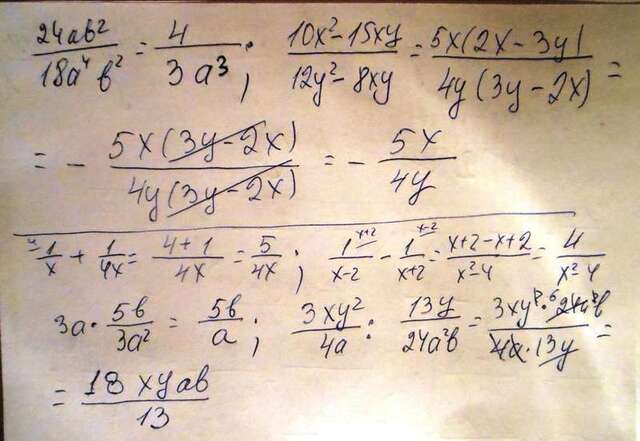 24ab²/18a⁴b² = 4/3a³; (10x² - 15xy)/(12y² - 8xy) = 5x(2x - 3y)/4y(3y - 2x) =
= - 5x(3y - 2x)/4y(3y - 2x) = - 5x/4y
⁴1/x + 1/4x = (4 + 1)/4x = 5/4x; 1/(x-2) ˣ⁺² - 1/(x+2) ˣ⁻² = (x+2-x+2)/(x²-4) = 4/(x²-4)
3a · 5b/3a² = 5b/a; 3xy²/4a : 13y/24a²b = 3xy² · ⁶24a²b/4a · 13y =
= 18xyab/13